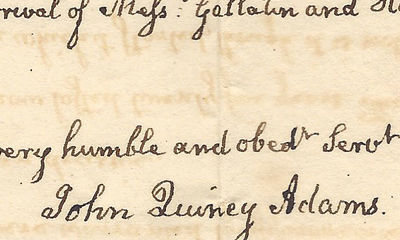 rrival of Mess: Gallatin and
very humble and obedt Servt
John Quincy Adams.